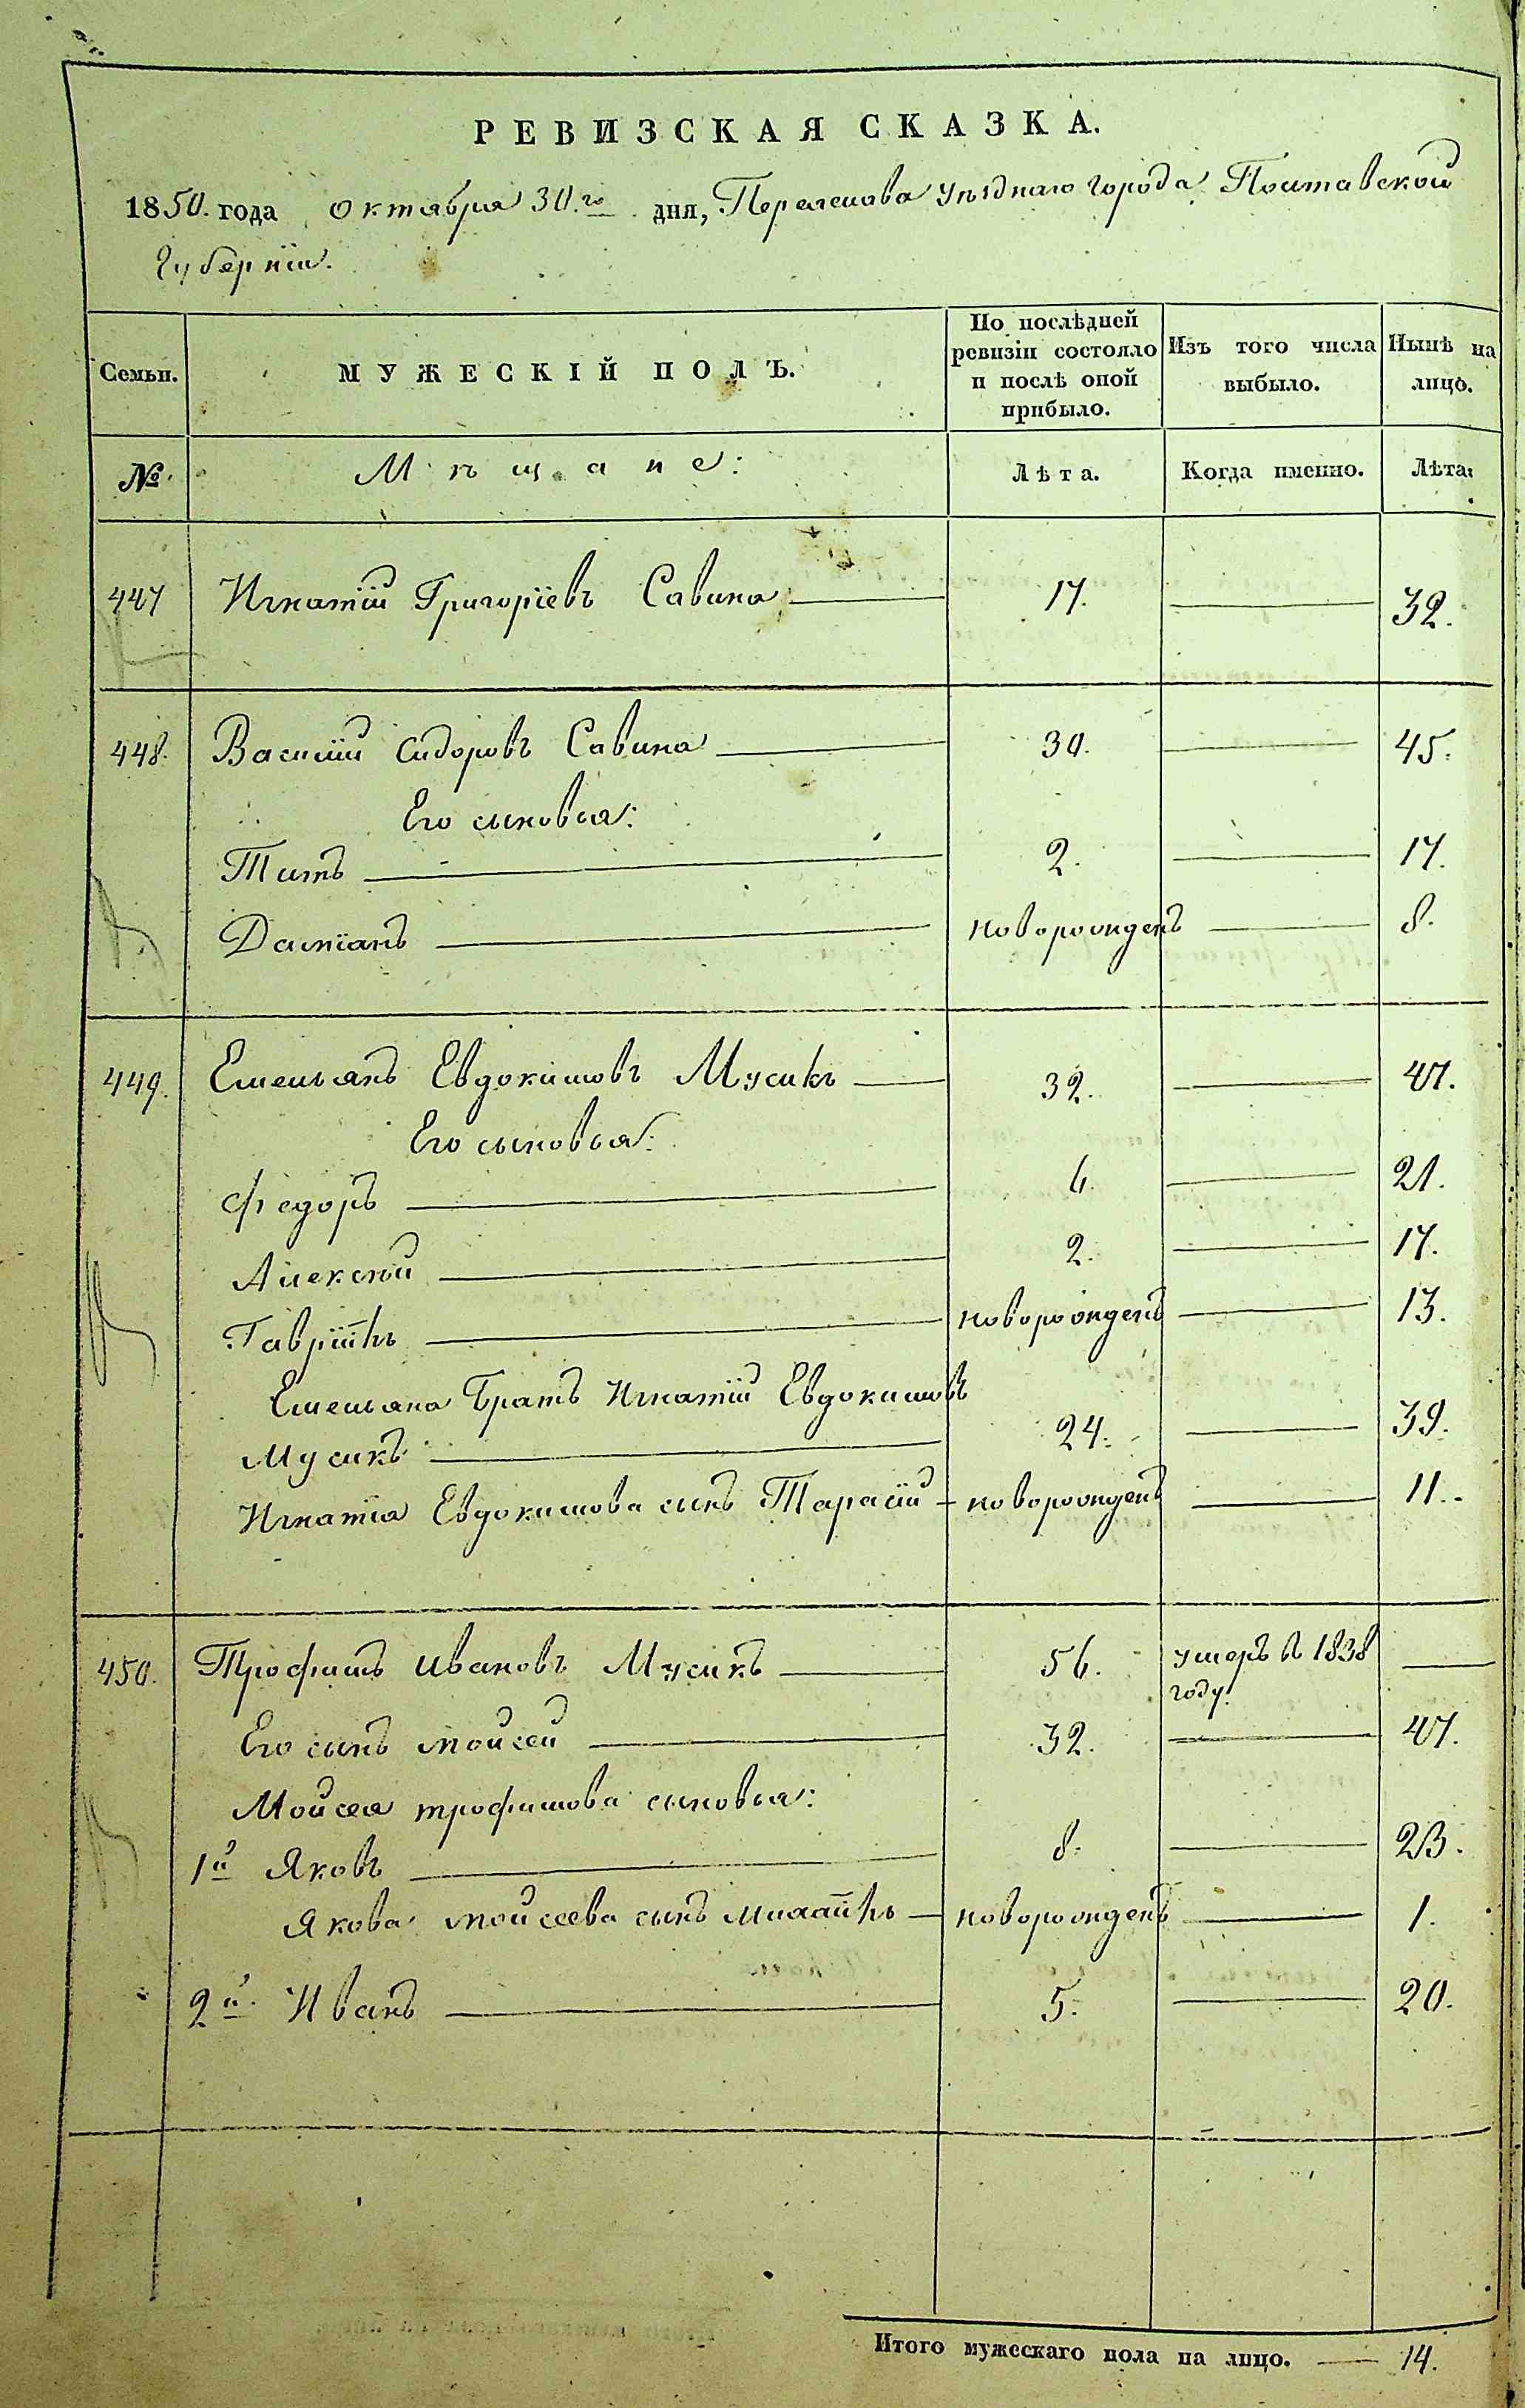 РЕВИЗСКАЯ СКАЗКА.
1850. года Октября 30.го дня, Переяслова Уѣзднаго города Полтавской
Губерніи.
Семьи.
МУЖЕСКІЙ ПОЛЪ.
По послѣдней
ревизіи состояло
и послѣ оной
прибыло.
Изъ того числа
выбыло.
Нынѣ на
лицо.
№.
Мѣщане:
Лѣта.
Когда именно.
Лѣта.
447 Игнатій Григоріевъ Савина 17. 32.
448. Василій Сидоровъ Савина 30. 45.
Его сыновья:
Титъ 2. 17.
Даміанъ новорожденъ 8.
449. Емельянъ Евдокимовъ Мусикъ 32. 47.
Его сыновья:
Федоръ 6. 21.
Алексѣй 2. 17.
Гавріилъ новорожденъ 13.
Емельяна Братъ Игнатій Евдокимовъ
Мусикъ 24. 39.
Игнатія Евдокимова сынъ Тарасій новорожденъ 11.
450. Трофимъ Ивановъ Мусикъ 56. умеръ въ 1838
году.
Его сынъ Моисей 32. 47.
Моисея трофимова сыновья:
1й Яковъ 8. 23.
Якова моисеева сынъ михаилъ новорожденъ 1.
2й. Иванъ 5. 20.
Итого мужескаго пола на лицо. 14.